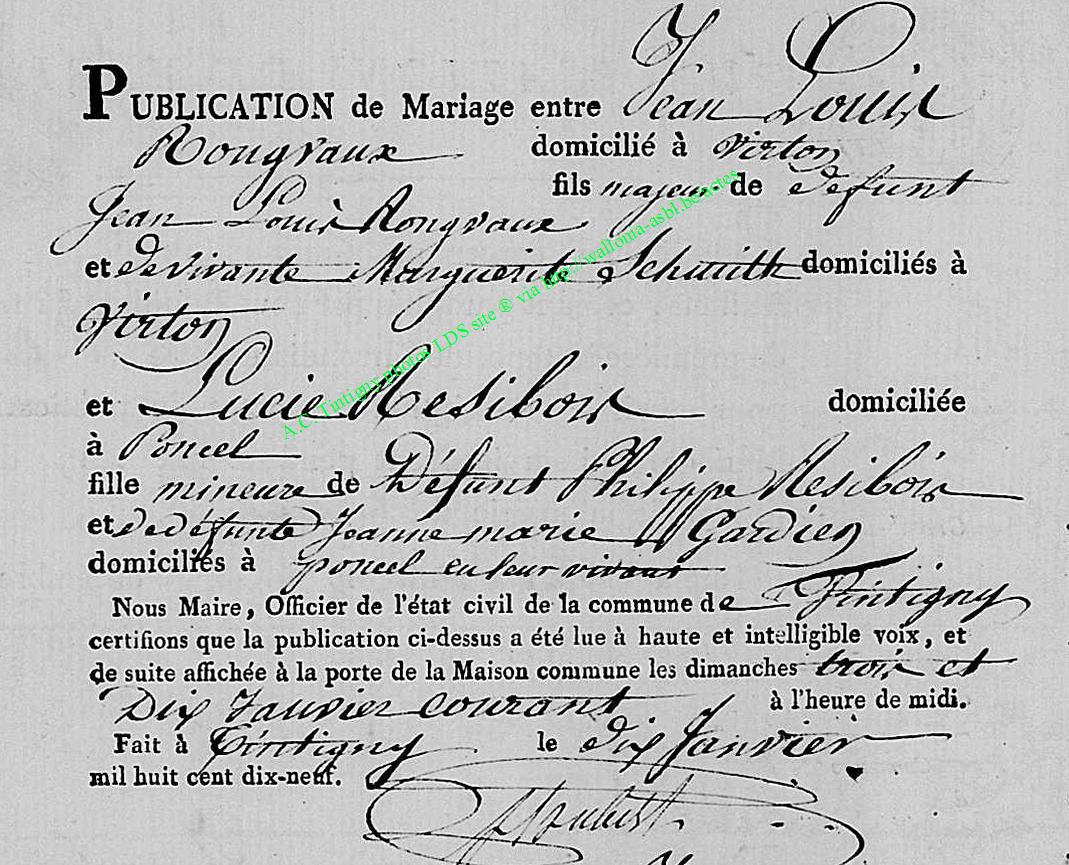 PUBLICATION de Mariage entre Jean Louis
Rongvaux domicilié à Virton
fils majeur de défunt
Jean Louis Rongvaux
et de vivante Marguerite Schmith domiciliés à
Virton
et Lucie Résibois domiciliée
à Poncel
fille mineure de Défunt Philippe Résibois
et de défunte Jeanne marie Gardien
domiciliés à poncel en leur vivant
Nous Maire, Officier de l'état civil de la commune de Tintigny
certifions que la publication ci-dessus a été lue à haute et intelligible voix, et
de suite affichée à la porte de la Maison commune les dimanches trois et
Dix Janvier courant à l'heure de midi.
Fait à Tintigny le dix Janvier
mil huit cent dix-neuf.
A.C. Tintigny photos LDS site ® via http://wallonia-asbl.be/actes